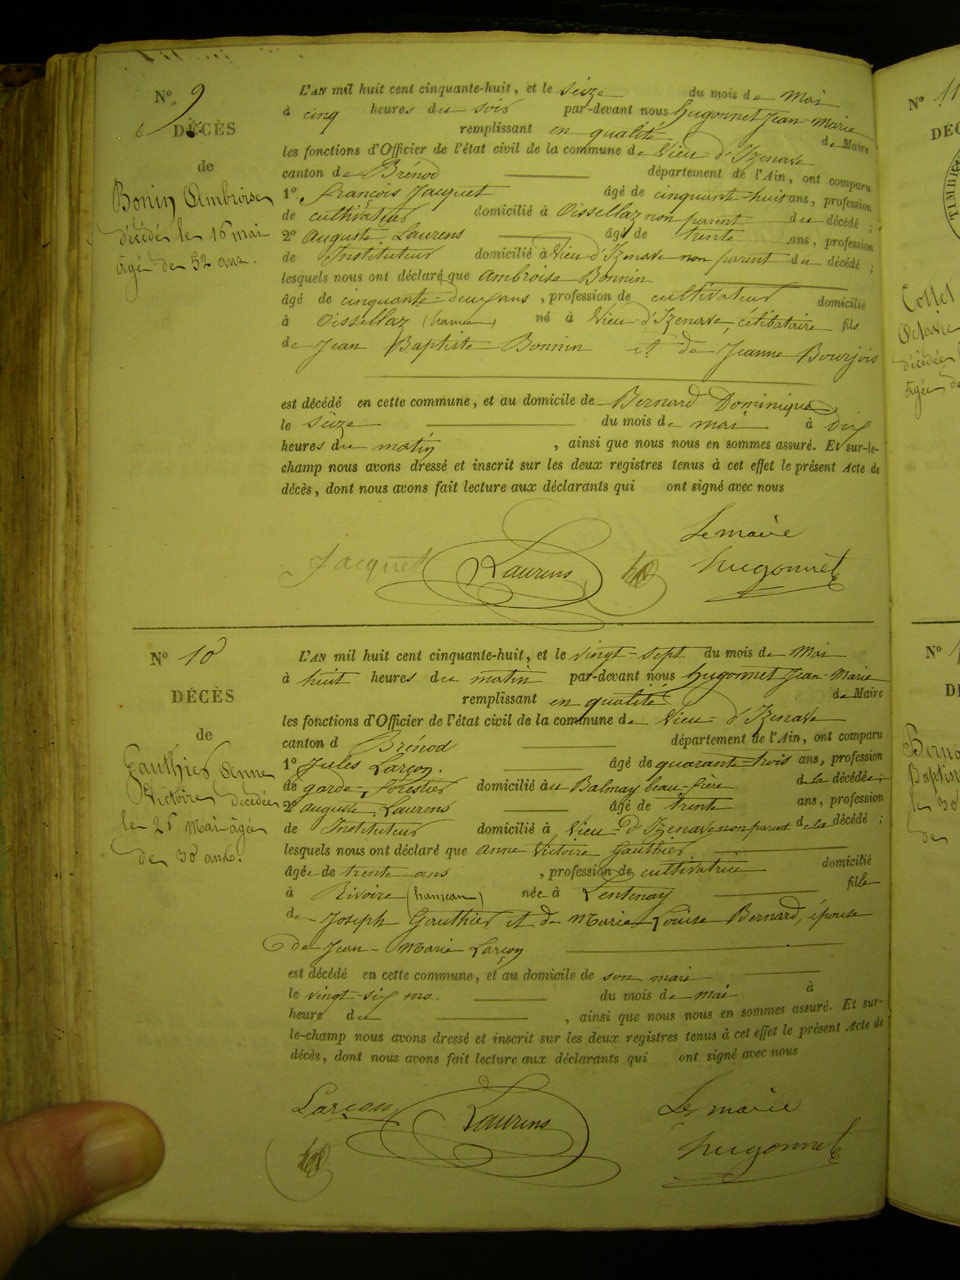 N° 9
DÉCÈS
de
Bonin Ambroise
décédé le 16 mai
âgé de 52 ans.
L'AN mil huit cent cinquante-huit, et le seize du mois de Mai
à cinq heures du soir par-devant nous Hugonnet Jean-Marie
remplissant en qualité de Maire
les fonctions d'Officier de l'état civil de la commune de Vieu-d'Izenave
canton de Brénod département de l'Ain, ont comparu
1° François Jacquet âgé de cinquante-huit ans, profession
de cultivateur domicilié à Oissellaz non parent du décédé ;
2° Auguste Laurens âgé de trente ans, profession
de Instituteur domicilié à Vieu d'Izenave non parent du décédé ;
lesquels nous ont déclaré que Ambroise Bonnin
âgé de cinquante-deux ans, profession de cultivateur domicilié
à Oissellaz (hameau) né à Vieu-d'Izenave, célibataire fils
de Jean Baptiste Bonnin et de Jeanne Bourjois
est décédé en cette commune, et au domicile de Bernard Dominique
le Seize du mois de mai à dix
heures du matin, ainsi que nous nous en sommes assuré. Et sur-le-
champ nous avons dressé et inscrit sur les deux registres tenus à cet effet le présent Acte de
décès, dont nous avons fait lecture aux déclarants qui ont signé avec nous
Le maire
Jacquet Laurens Hugonnet
N° 10
DÉCÈS
de
Gauthier Anne
Victoire décédée
le 26 Mai âgée
de 30 ans.
L'AN mil huit cent cinquante-huit, et le vingt-sept du mois de Mai
à huit heures du matin par-devant nous Hugonnet Jean-Marie
remplissant en qualité de Maire
les fonctions d'Officier de l'état civil de la commune de Vieu-d'Izenave
canton d Brénod département de l'Ain, ont comparu
1° Jules Larçon. âgé de quarante-trois ans, profession
de garde-forestier domicilié au Balmay beau-frère de la décédée ;
2° auguste Laurens âgé de trente ans, profession
de Instituteur domicilié à Vieu-d'Izenave non parent de la décédé ;
lesquels nous ont déclaré que anne Victoire Gauthier
âgée de trente ans, profession de cultivatrice domicilié
à Rivoire (hameau) née à Lentenay fille
de Joseph Gauthier et de Marie Louise Bernard, épouse
de Jean-Marie Larçon
est décédé en cette commune, et au domicile de son mari
le vingt-six du mois de mai à
heure du , ainsi que nous nous en sommes assuré. Et sur-
le-champ nous avons dressé et inscrit sur les deux registres tenus à cet effet le présent Acte de
décès, dont nous avons fait lecture aux déclarants qui ont signé avec nous
Larçon Laurens Le maire
Hugonnet
N° 11